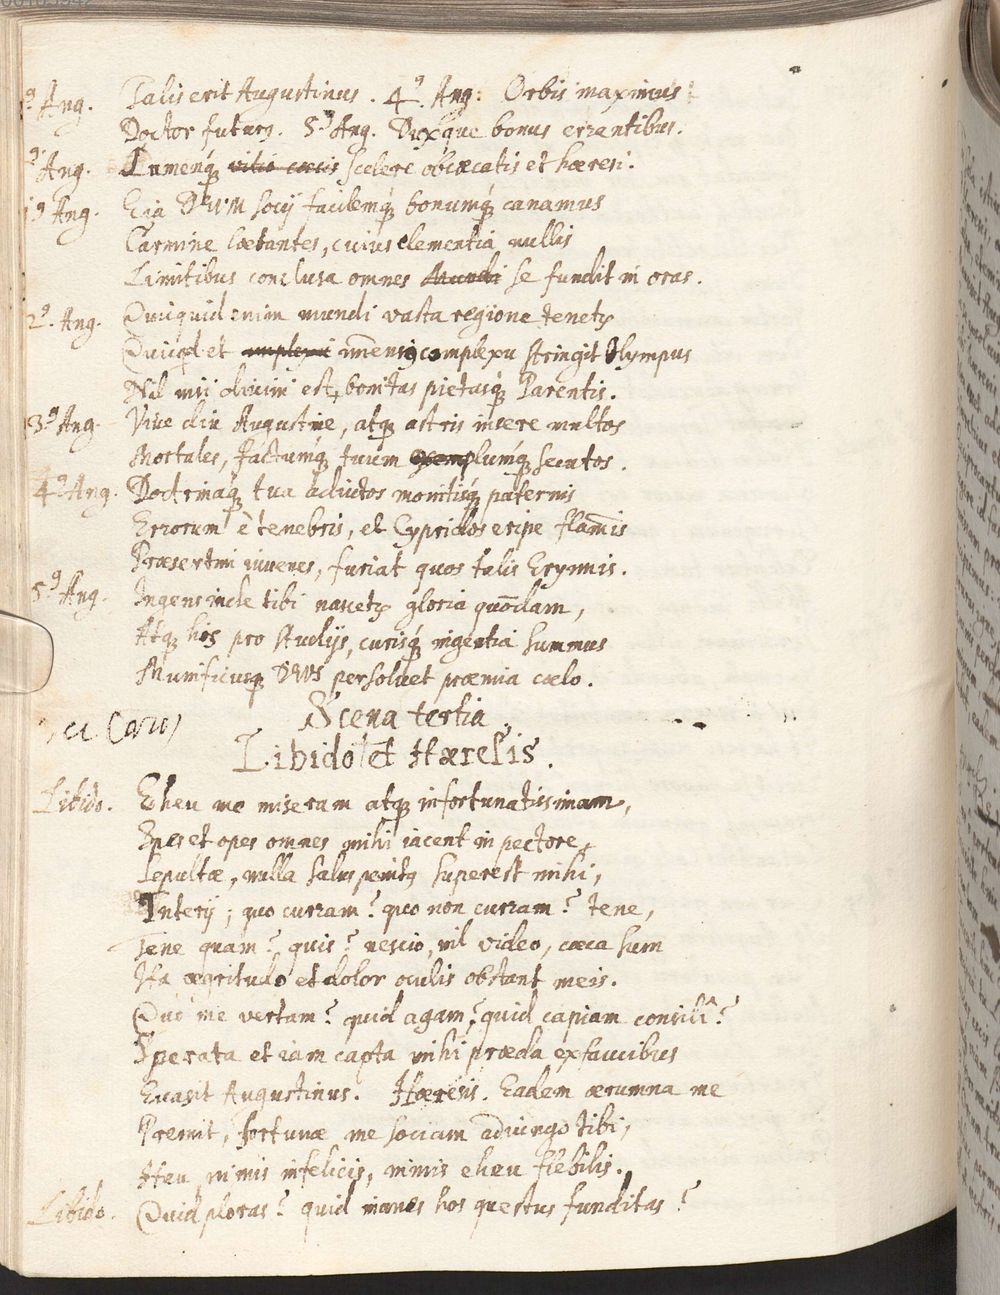 9 Ang. Talis erit Augustinus. 4.9 Ang: Orbis maximus
Doctor futurꝰ. 5.9 Ang. Duxque bonus errantibus.
9 Ang. Lumenqꝫ vitio cæcis scelere obcæcatis et hæresi.
1 9 Ang. Eia DEVM socij facilemqꝫ bonumqꝫ canamus
Carmine lætantes, cuius clementia nullis
Limitibus conclusa omnes Mundi se fundit in oras.
2.9 Ang. Quicquid enim mundi vasta regione tenetꝛ
Quicqd et amplexu im̄enso complexu stringit Olympus
Nil nisi divini est bonitas pietasqꝫ Parentis.
3.9 Ang. Vive diu Augustine, atqꝫ astris insere multos
Mortales, factumqꝫ tuum exemplumqꝫ secutos.
4.9 Ang. Doctrinaqꝫ tua adiutos monitisqꝫ paternis
Errorum è tenebris, et Cypridos eripe flam̄is
Præsertim iuvenes, furiat quos talis Erynnis.
5.9 Ang. Ingens inde tibi nascetꝛ gloria quōdam,
Atqꝫ hos pro studijs, curisqꝫ ingentia summus
Munificusqꝫ DEVS persolvet præmia cælo.
Scena tertia.
Libido et Hæresis.
Libido. Eheu me miseram atqꝫ infortunatissimam,
Spes et opes omnes mihi iacent in pectore
Sepultæ, nulla salus penitꝰ superest mihi,
Interij; quo curram? quo non curram? tene,
Tene quam? quis? nescio, nil video, cæca sum
Ita ægritudo et dolor oculis obstant meis.
Quo me vertam? quid agam? quid capiam consilî?
Sperata et iam capta mihi præda ex faucibus
Evasit Augustinus. Hæresis. Eadem ærumna me
Premit, fortunæ me sociam adiungo tibi,
Heu nimis infelicis, nimis eheu flebilis.
Libido. Quid ploras? quid inanes hos questus funditas?